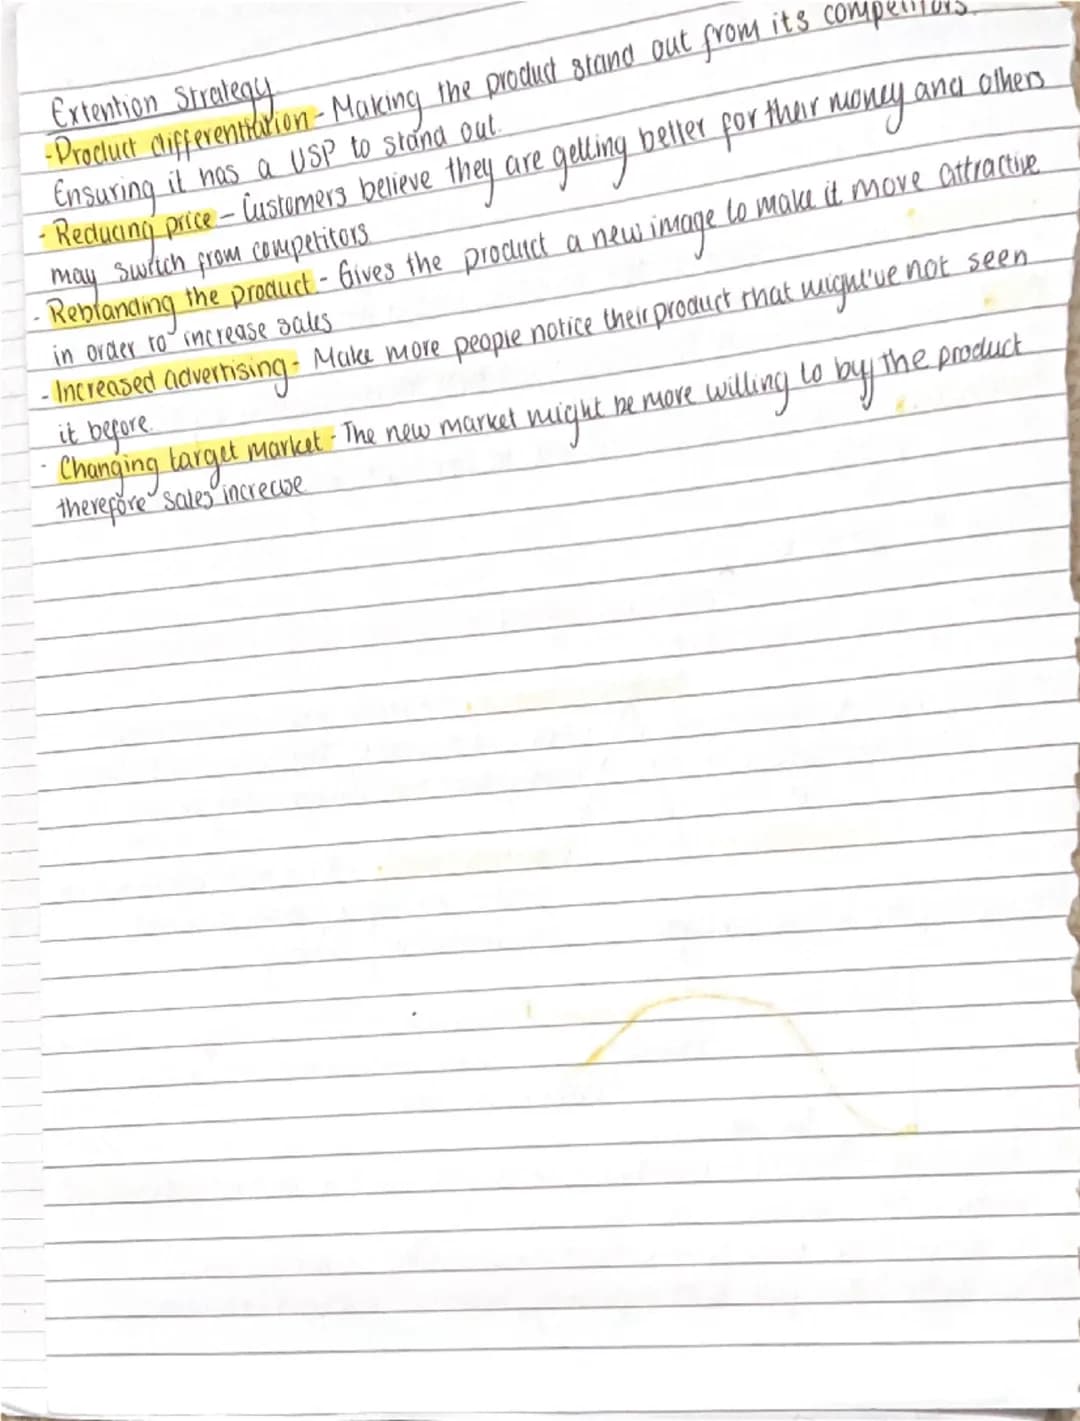 Extention Strategy
- Product differentiation - Making the product stand out from its competitors.
Ensuring it has a USP to stand out.
- Reducing price - Customers believe they are getting better for their money and others
may switch from competitors
- Rebranding the product - Gives the product a new image to make it move attractive
in order to increase sales
- Increased advertising - Make more people notice their product that might've not seen
it before.
- Changing target market - The new market might be more willing to by the product
therefore sales increase